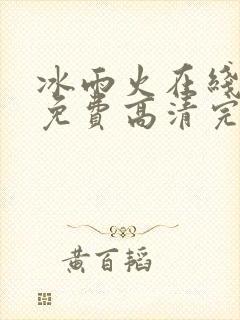 冰雨火在线
免费高清完
黄百韬